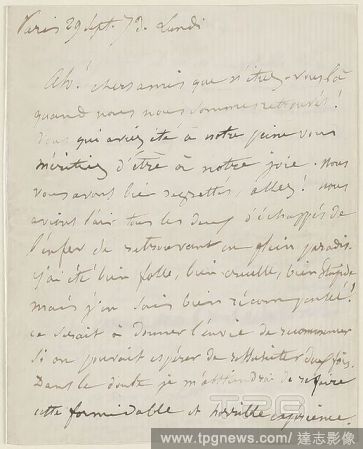 Paris 29 Sept. 73. Lundi
Ah! chers amis que n'étiez-vous là
quand nous nous sommes retrouvés!
Vous qui aviez été à notre peine vous
méritiez d'être à notre joie. Nous
vous avons bien regrettés allez! nous
avions l'air tous les deux d'échappés de
l'enfer se retrouvant en plein paradis.
j'ai été bien folle, bien cruelle, bien stupide
mais j'en suis bien récompensée!
ce serait à donner l'envie de recommencer
si on pouvait espérer de
Dans le doute je m'abstiendrai de refaire
cette formidable et horrible expérience.
TPG
www.tpgnews.com/達志影像